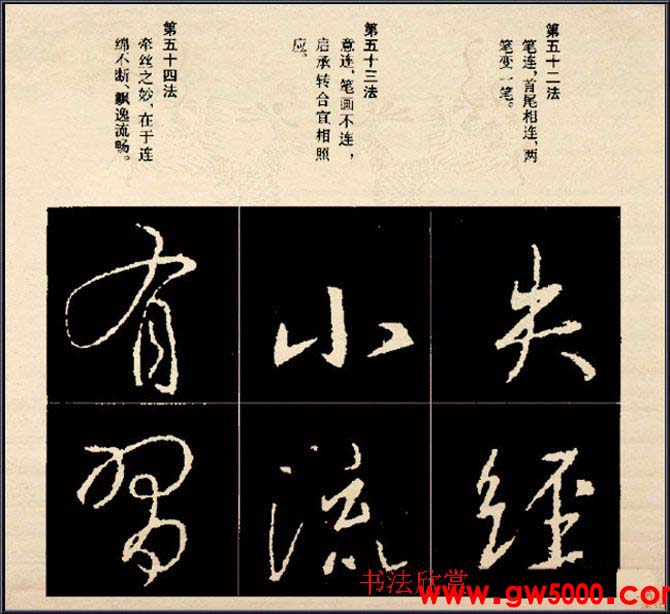 第五十二法
笔连，首尾相连，两
笔变一笔。
第五十三法
意连，笔画不连，
启承转合宜相照
应。
第五十四法
牵丝之妙，在于连
绵不断、飘逸流畅。
失 小 有
经 流 習
书法欣赏
www.gw5000.com